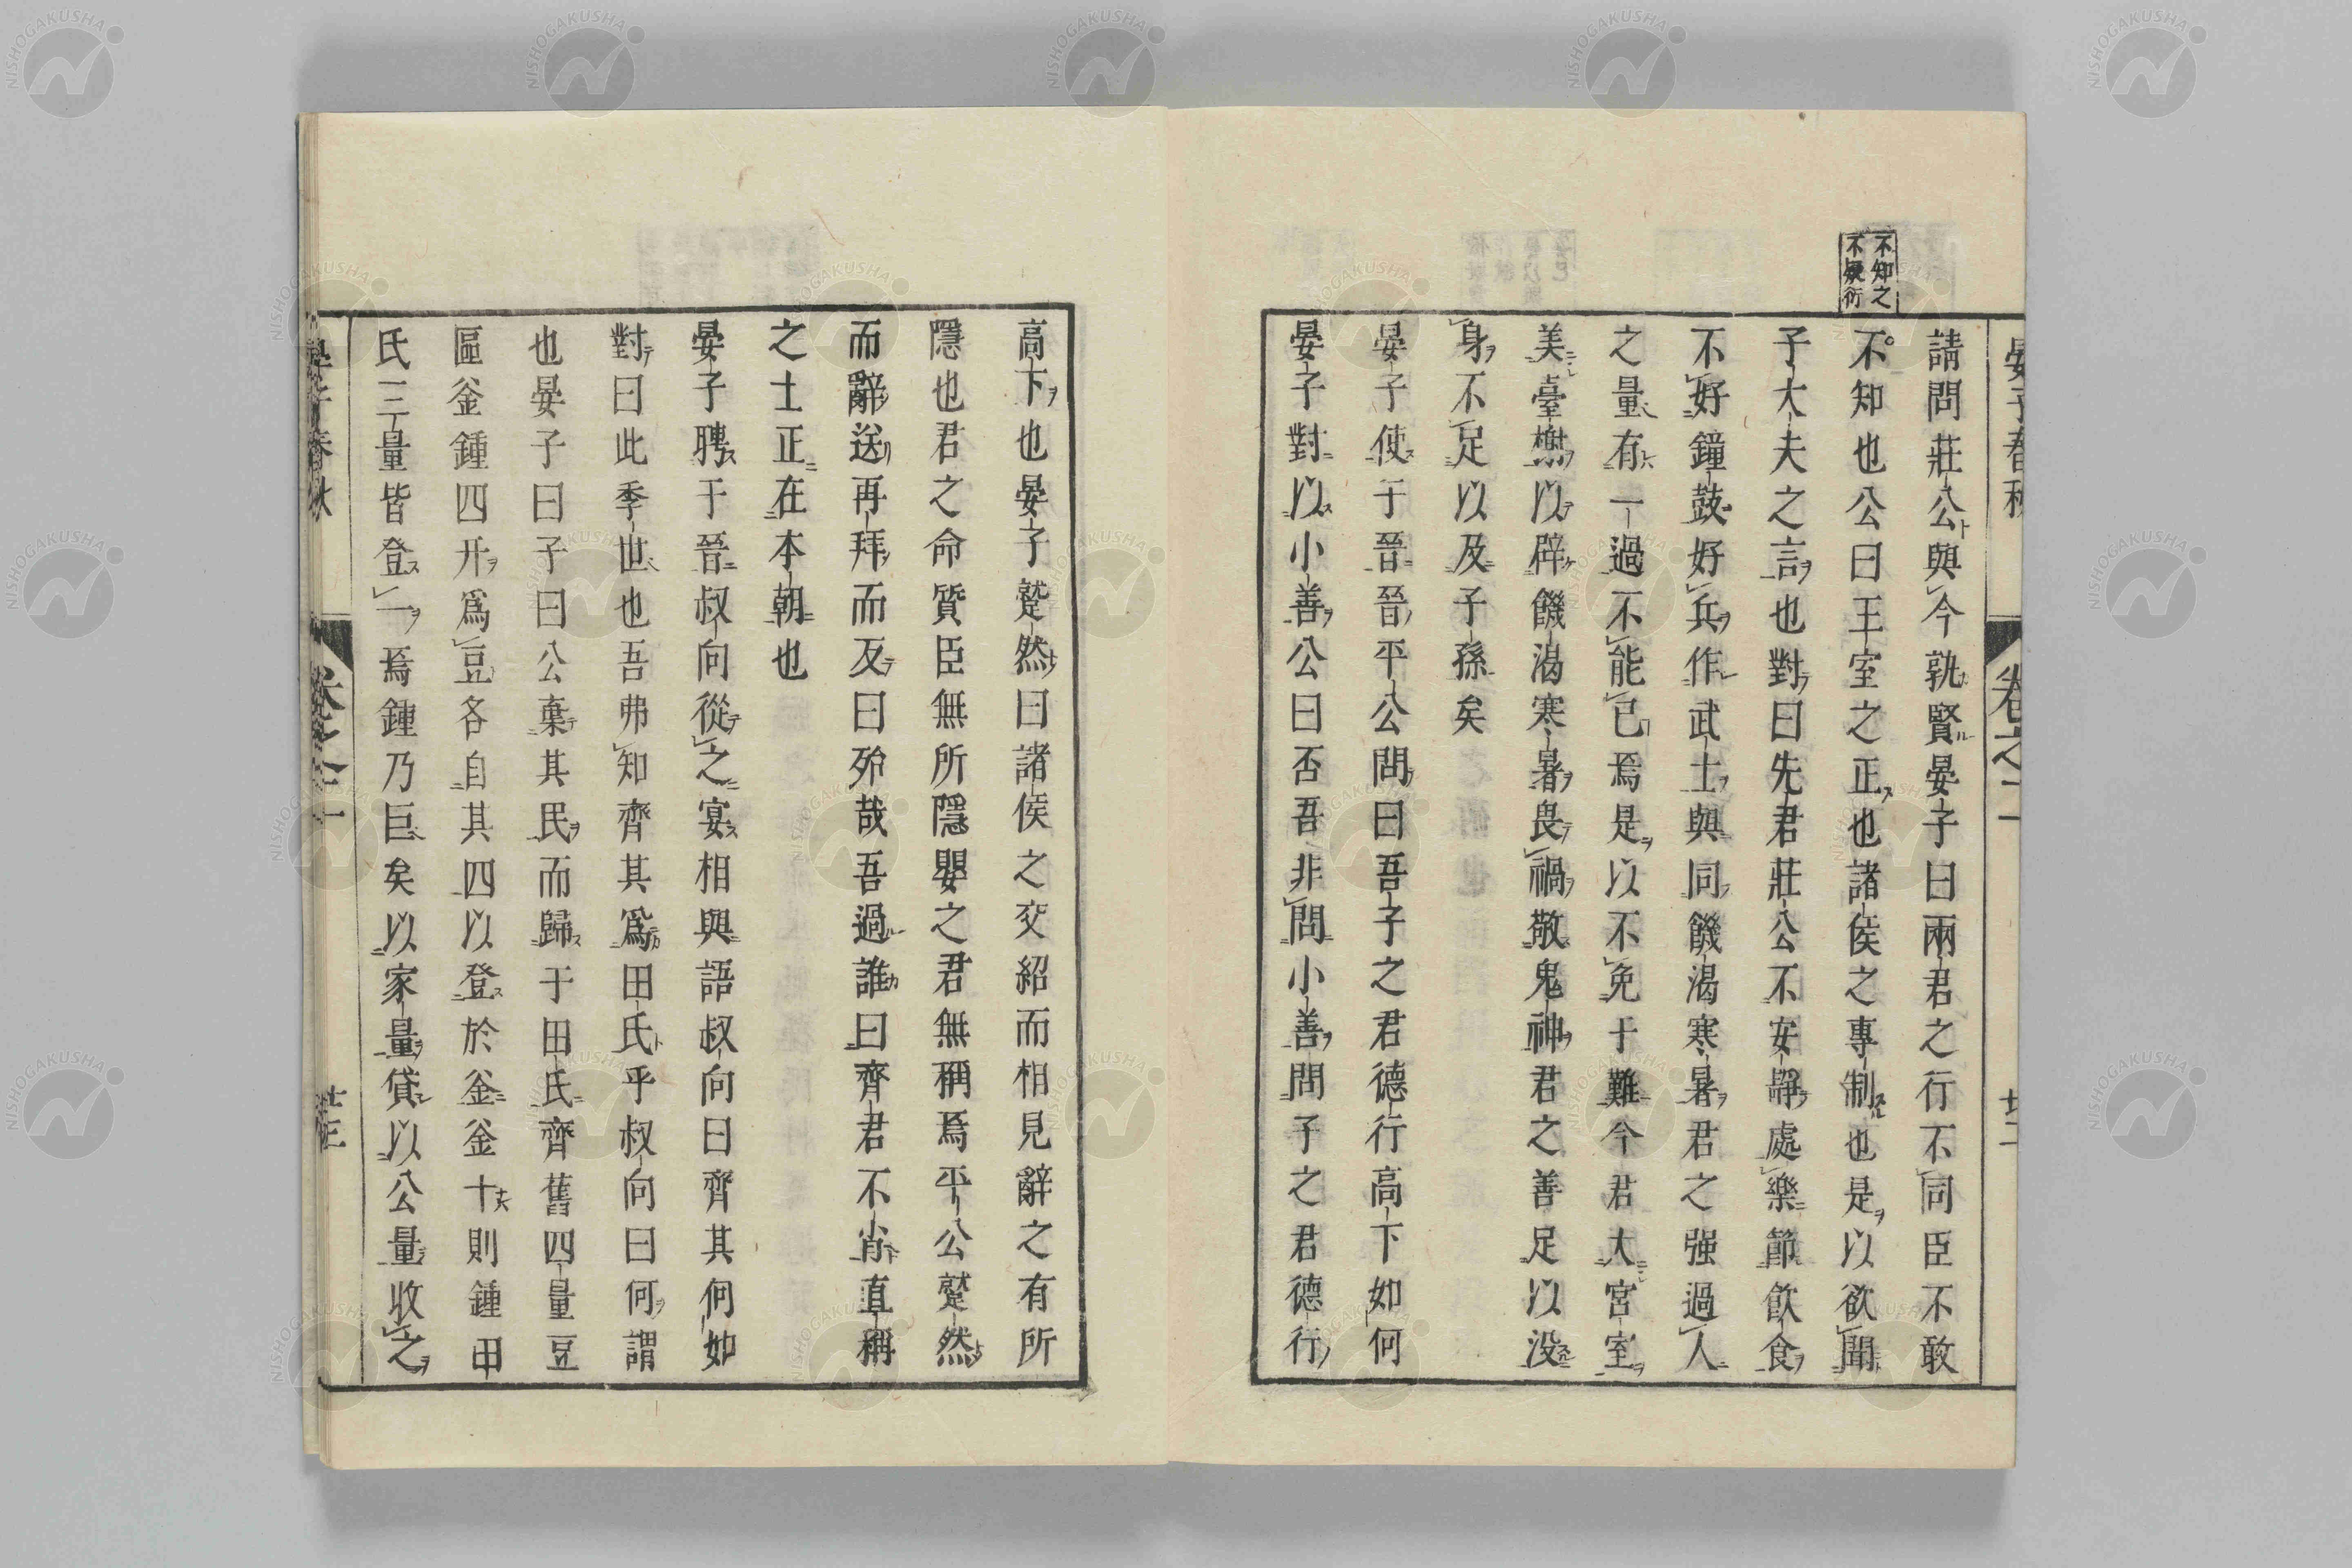 不知之
不疑衍
晏子春秋
卷之二
請問莊公與今孰賢晏子曰兩君之行不同臣不敢
不知也公曰王室之正也諸侯之專制也是以欲聞
子大夫之言也對曰先君莊公不安靜處樂節飮食
不好鐘鼓好兵作武士與同饑渴寒暑君之强過人
之量有一過不能已焉是以不免于難今君大宮室
美臺榭以辟饑渴寒暑畏禍敬鬼神君之善足以没
身不足以及子孫矣
晏子使于晉晉平公問曰吾子之君德行高下如何
晏子對以小善公曰否吾非問小善問子之君德行
高下也晏子蹵然曰諸侯之交紹而相見辭之有所
隱也君之命質臣無所隱嬰之君無稱焉平公蹵然
而辭送再拜而反曰殆哉吾過誰曰齊君不肖直稱
之士正在本朝也
晏子聘于晉叔向從之宴相與語叔向曰齊其何如
對曰此季世也吾弗知齊其爲田氏乎叔向曰何謂
也晏子曰子曰公棄其民而歸于田氏齊舊四量豆
區釜鍾四升爲豆各自其四以登於釜釜十則鍾田
氏三量皆登一焉鍾乃巨矣以家量貸以公量收之